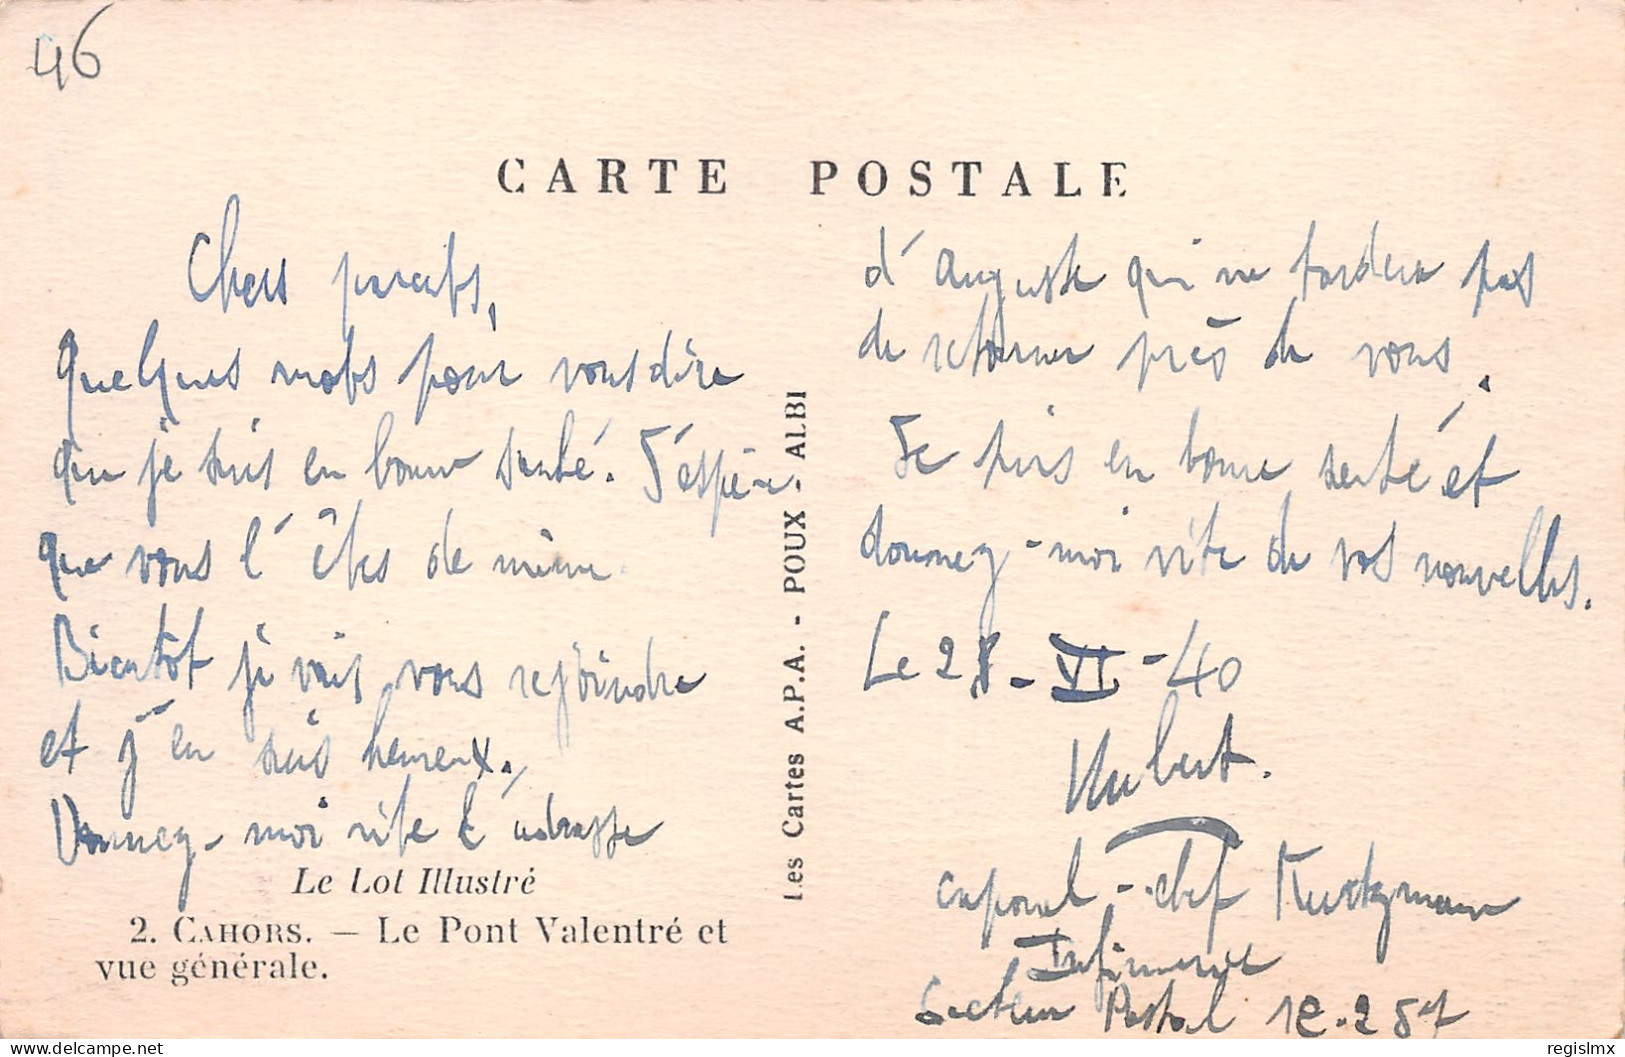 46
CARTE POSTALE
Chers parents,
Quelques mots pour vous dire
que je suis en bonne santé. J'espère
que vous l'êtes de même.
Bientôt je vais vous rejoindre
et j'en suis heureux.
Donnez-moi vite l'adresse
Le Lot Illustré
2. CAHORS. — Le Pont Valentré et
vue générale.
Les Cartes A.P.A. - POUX - ALBI
d'Auguste qui ne tardera pas
de retourner près de vous.
Je suis en bonne santé et
donnez-moi vite de vos nouvelles.
Le 28-VI-40
Hubert.
caporal-chef Kurtzmann
Infirmerie
Secteur Postal
regislmx